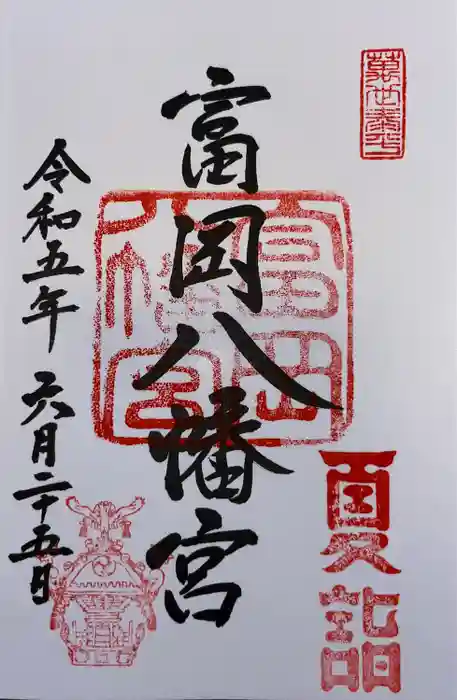 萬世泰平
富岡八幡宮
富岡八幡宮
夏詣
令和五年六月二十五日